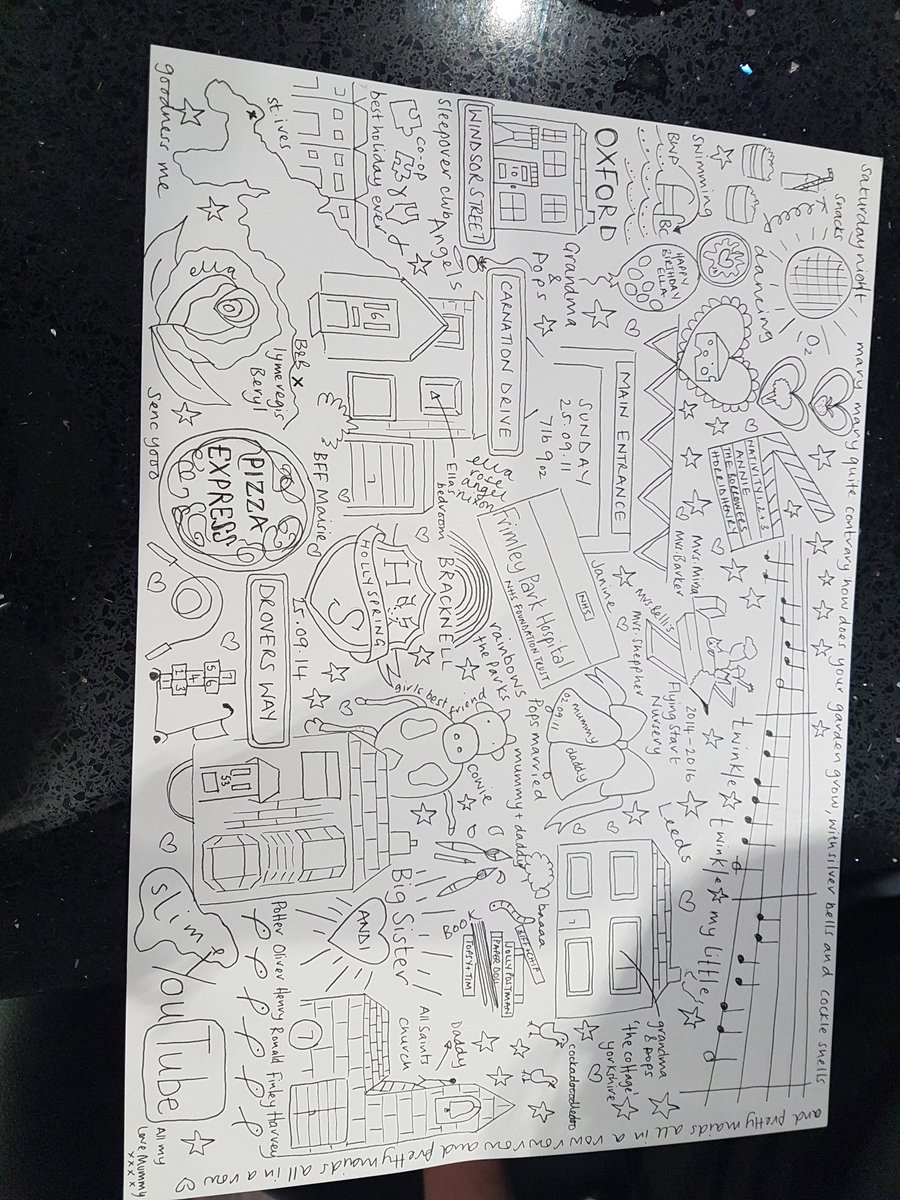 saturday night
mary mary quite contrary how does your garden grow with silver bells and cockle shells
and pretty maids all in a row row row and pretty maids all in a row
snacks
O2
dancing
swimming
BWP
BC
HAPPY
BIRTHDAY
ELLA
NATIVITY 1, 2 + 3
ANNIE
THE BORROWERS
HORRID HENRY
twinkle twinkle my little
Mrs. Ming
Mrs. Barker
Mrs. Bellis
Mrs. Sheppher
2014-2016
Flying Start
Nursery
Leeds
OXFORD
MAIN ENTRANCE
SUNDAY
25.09.11
7lb 9oz
Janine
NHS
Frimley Park Hospital
NHS FOUNDATION TRUST
mummy
daddy
02.09.11
mummy + daddy
Pops married
grandma
& pops
'the cottage'
yorkshire
Grandma
&
Pops
WINDSOR STREET
CARNATION DRIVE
16
Ella's
bedroom
ella
rose
angel
nixon
BRACKNELL
rainbows
the parks
girls best friend
cowie
baaaa
BIFF + CHIP
JOLLY POSTMAN
PAPER DOLL
TOPSY + TIM
cockadoodledoo
sleepover club Angels
co-op
best holiday ever
st. ives
B&B x
lyme regis
Beryl
BFF Maisie
HOLLY SPRING
HS
15.09.14
DROVERS WAY
53
Big Sister
ANDI
All Saints
Church
Daddy
Potter Oliver Henry Ronald Finley Harvey
ella
PIZZA
EXPRESS
1 2 3 4 5 6 7
slime
YouTube
goodness me
All my
love Mummy
xxxx